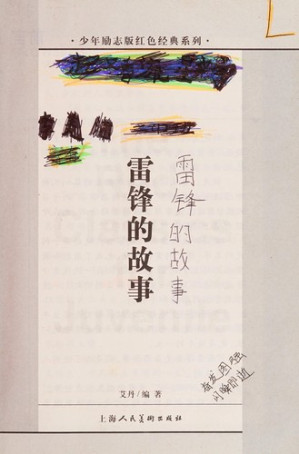 ·少年励志版红色经典系列·
雷锋的故事
雷锋的故事
艾丹/编著
上海人民美术出版社